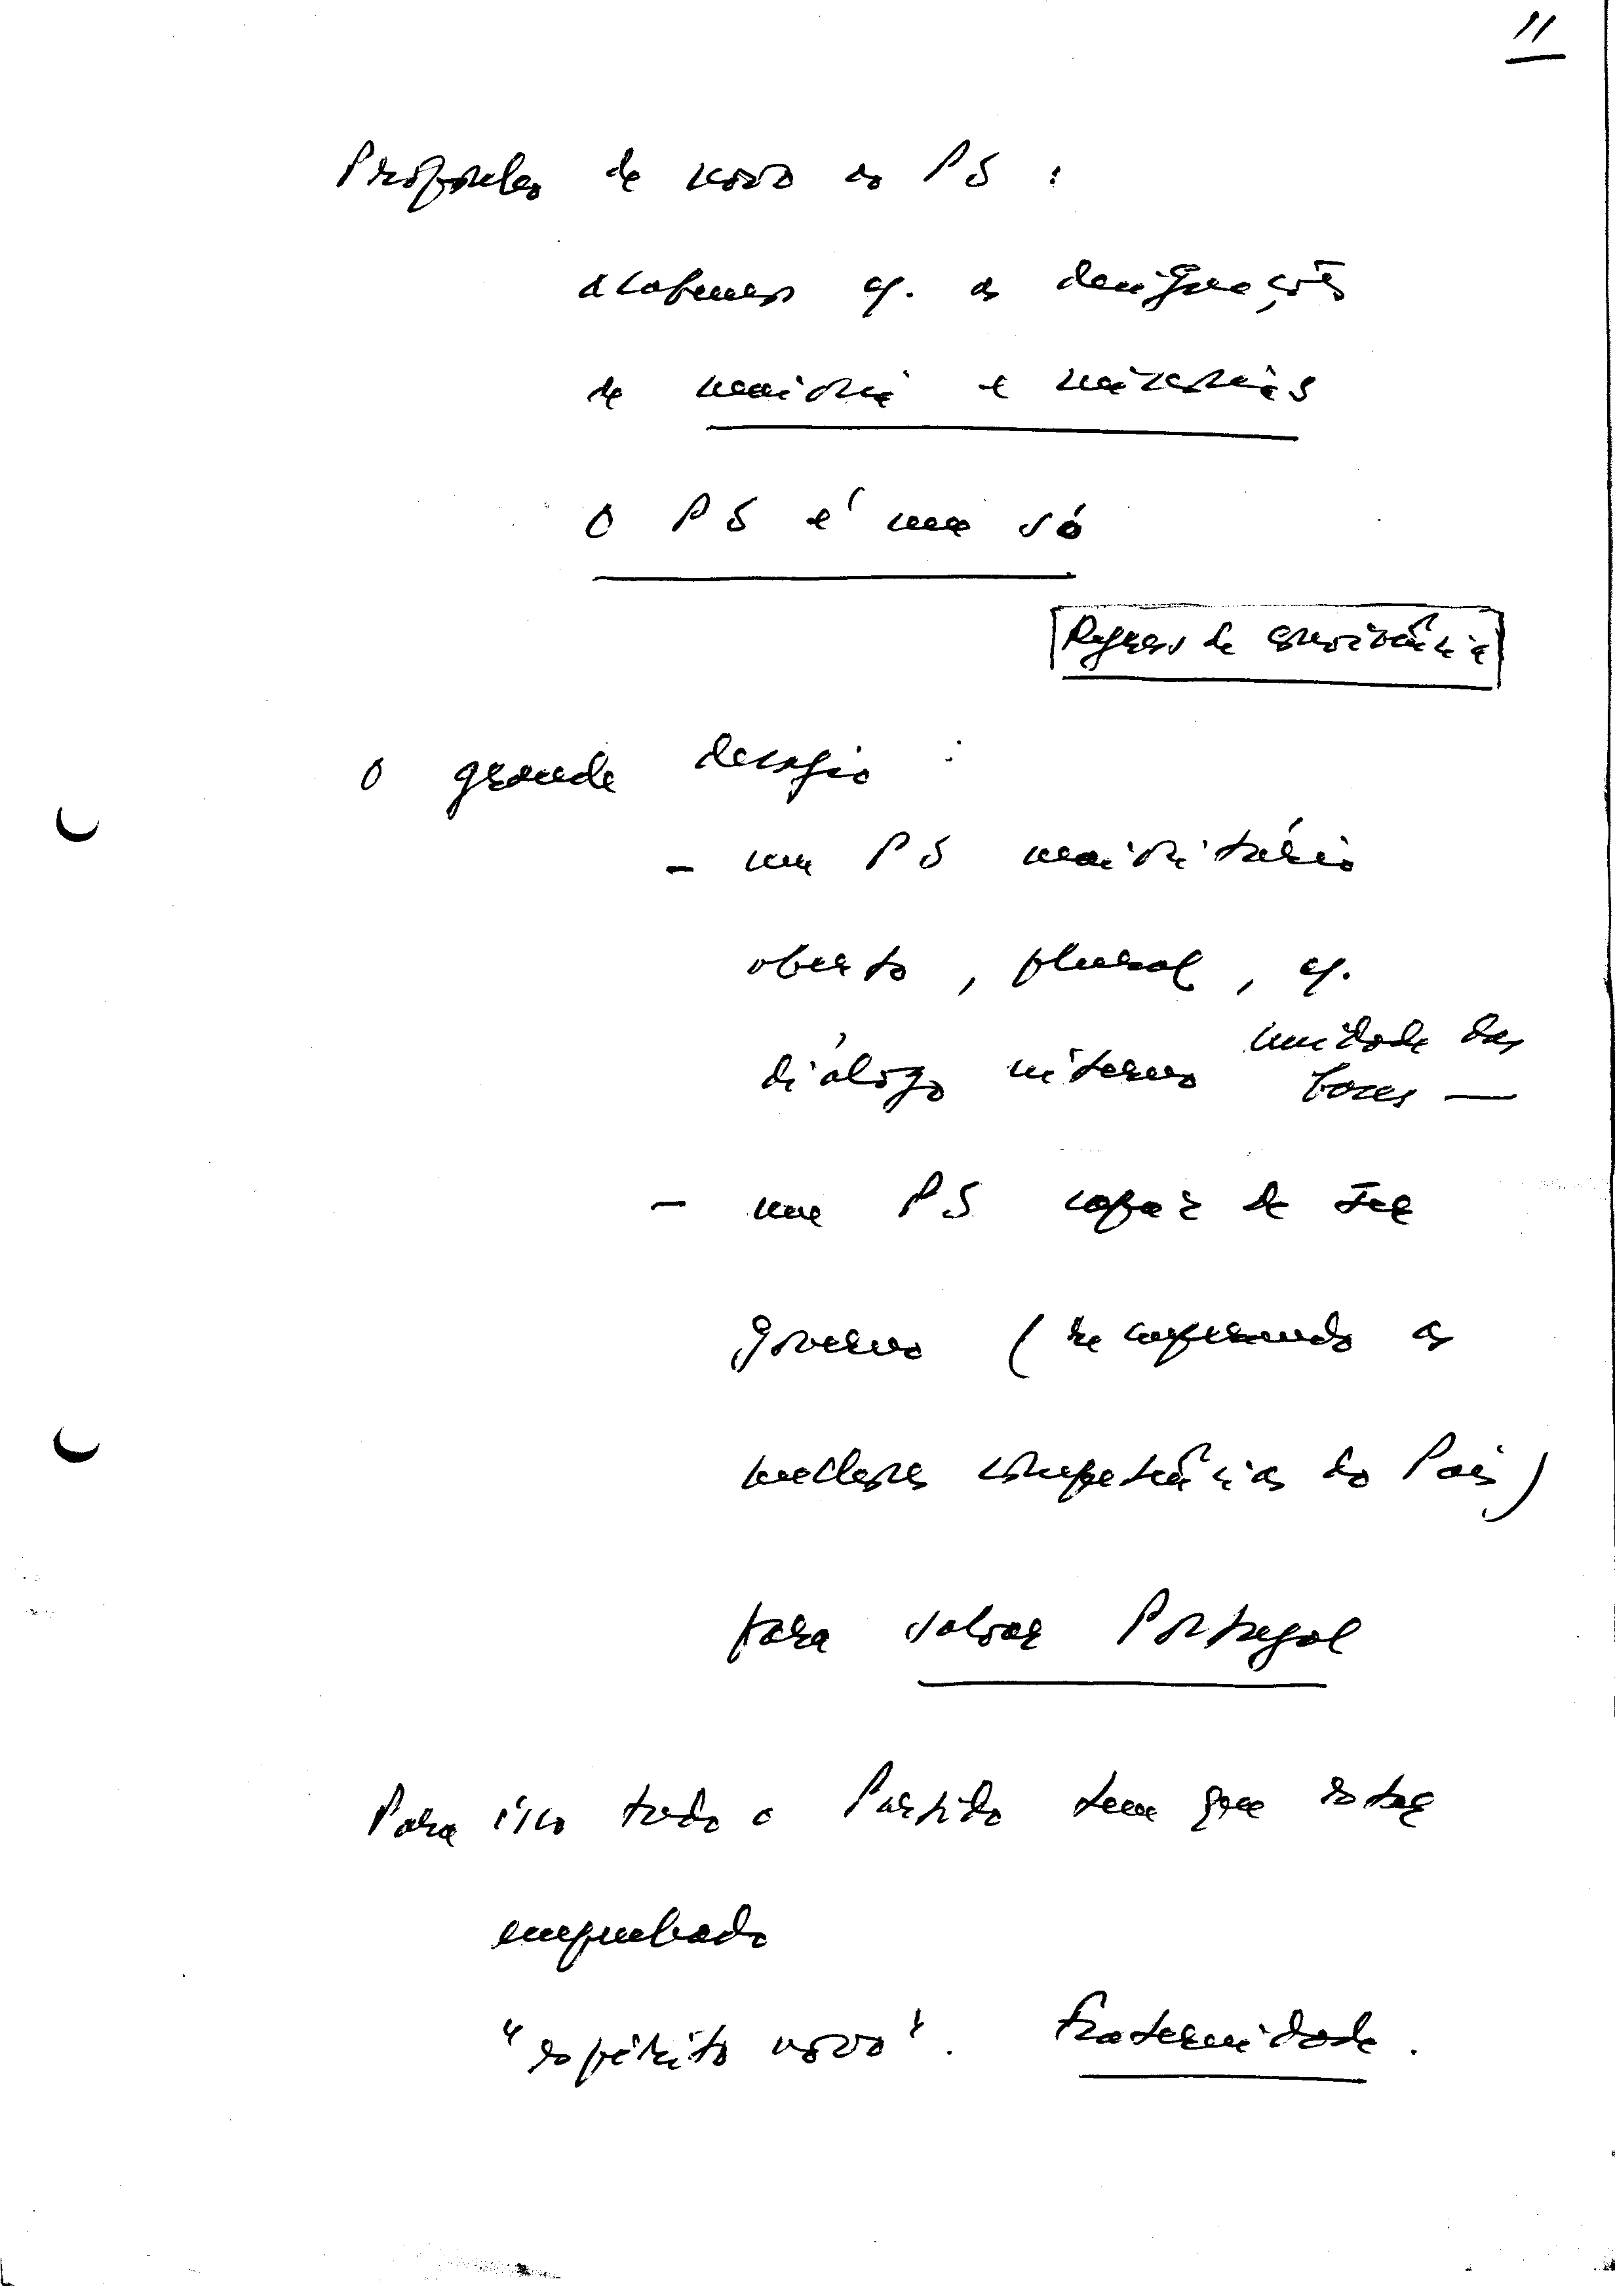 11
de novo ao PS :
acabemos c/. as designações
de maioria e minorias
O PS é um só
Regras de convivência
O grande desafio :
- um PS maioritário
aberto, plural, c/.
diálogo interno unidade das
bases —
- um PS capaz de ser
governo (recuperando as
melhores competências do País)
para salvar Portugal
Para isso todo o Partido tem que estar
empenhado
"espírito novo". Fraternidade.